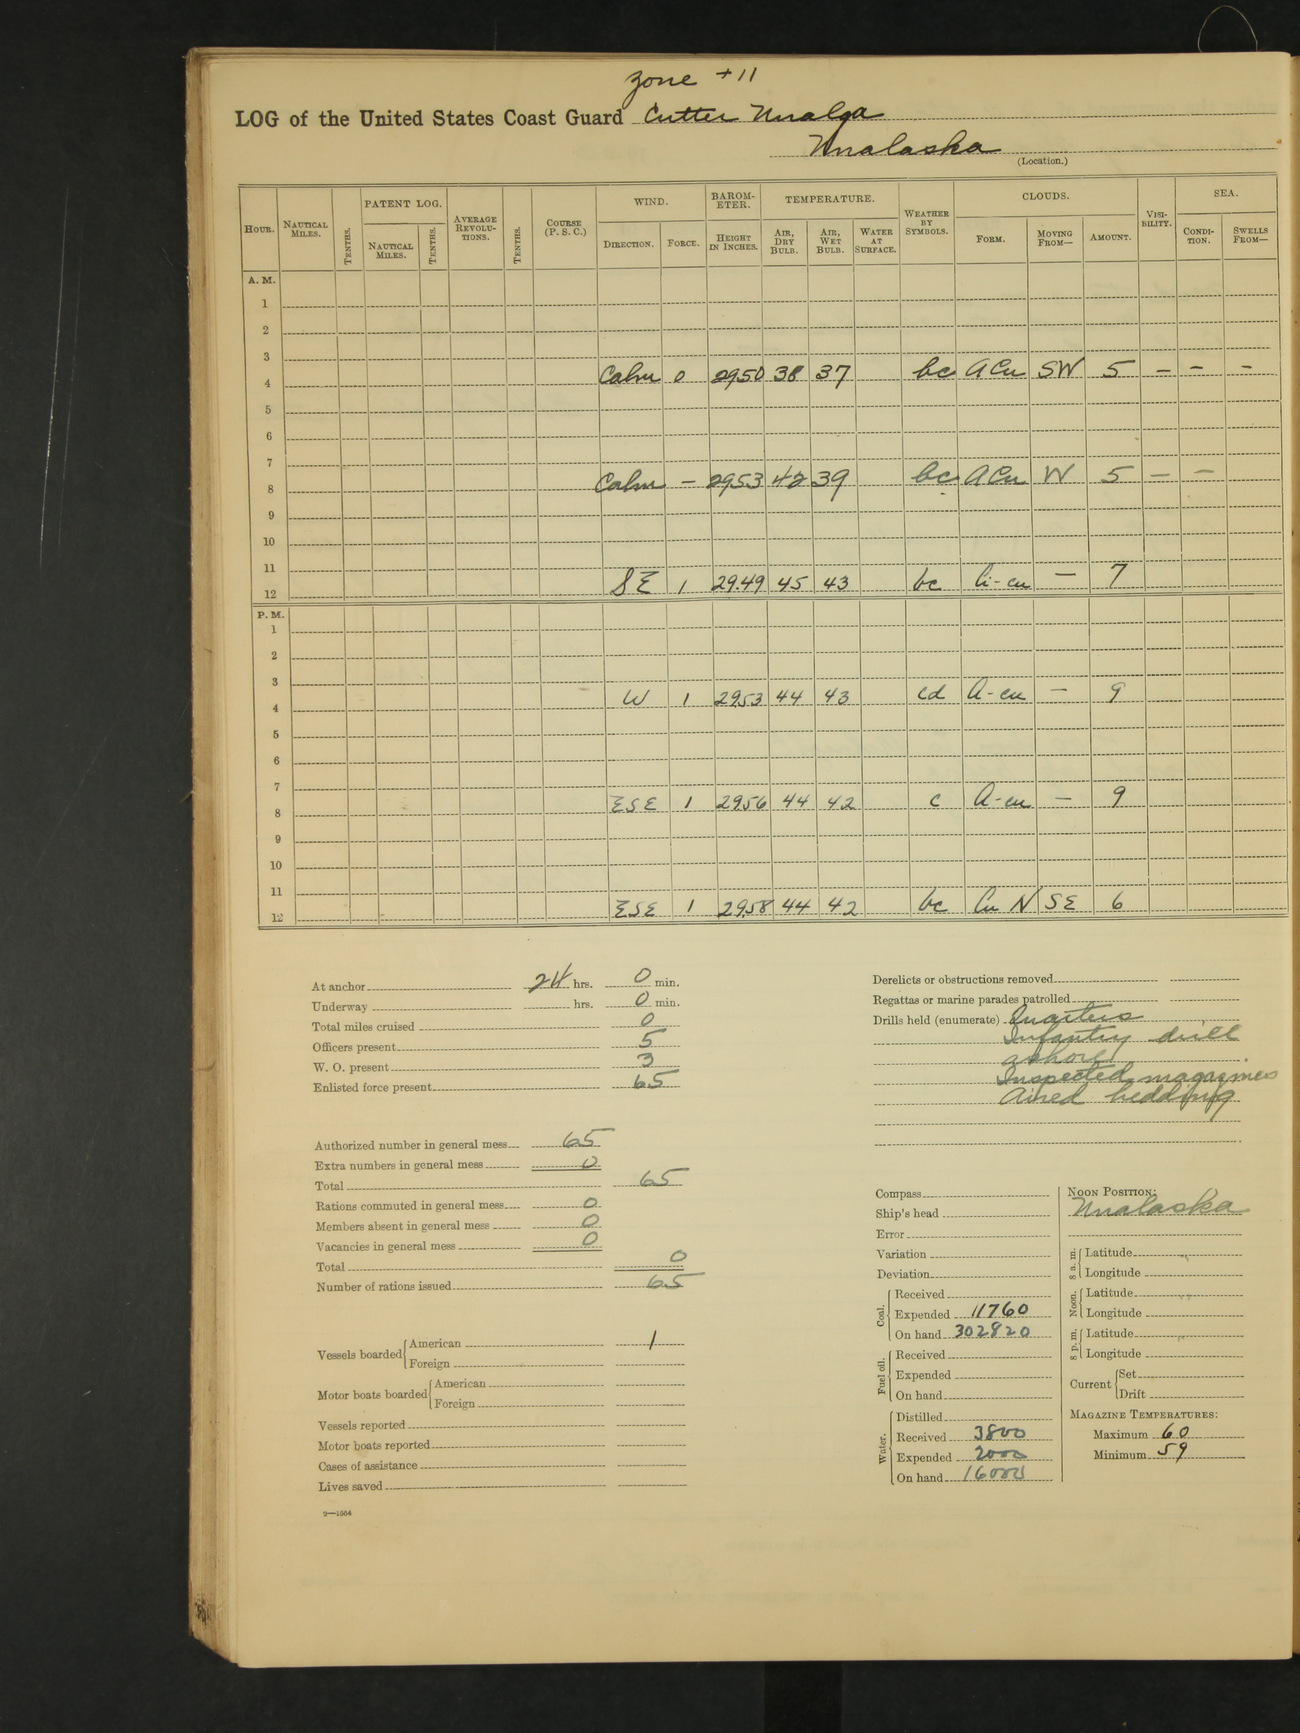 Zone +11
LOG of the United States Coast Guard Cutter Unalga
Unalaska
(Location.)
HOUR. NAUTICAL MILES. TENTHS. PATENT LOG. NAUTICAL MILES. TENTHS. AVERAGE REVOLU-TIONS. TENTHS. COURSE (P. S. C.) WIND. DIRECTION. FORCE. BAROM-ETER. HEIGHT IN INCHES. TEMPERATURE. AIR, DRY BULB. AIR, WET BULB. WATER AT SURFACE. WEATHER BY SYMBOLS. CLOUDS. FORM. MOVING FROM— AMOUNT. VISI-BILITY. SEA. CONDI-TION. SWELLS FROM—
A. M.
1
2
3
4 Calm 0 2950 38 37 bc ACu SW 5 – – –
5
6
7
8 Calm – 2953 42 39 bc ACu W 5 – –
9
10
11
12 SE 1 29.49 45 43 bc Ci-cu – 7
P. M.
1
2
3
4 W 1 2953 44 43 cd A-cu – 9
5
6
7
8 ESE 1 2956 44 42 c A-cu – 9
9
10
11
12 ESE 1 2958 44 42 bc Cu N SE 6
At anchor 24 hrs. 0 min.
Underway hrs. 0 min.
Total miles cruised 0
Officers present 5
W. O. present 3
Enlisted force present 65
Authorized number in general mess 65
Extra numbers in general mess 0
Total 65
Rations commuted in general mess 0
Members absent in general mess 0
Vacancies in general mess 0
Total 0
Number of rations issued 65
Vessels boarded American 1
Foreign
Motor boats boarded American
Foreign
Vessels reported
Motor boats reported
Cases of assistance
Lives saved
9—1664
Derelicts or obstructions removed
Regattas or marine parades patrolled
Drills held (enumerate) Quarters
Infantry drill
ashore
Inspected magazines
Aired bedding
Compass
Ship's head
Error
Variation
Deviation
Coal. Received
Expended 11760
On hand 302820
Fuel oil. Received
Expended
On hand
Water. Distilled
Received 3800
Expended 2000
On hand 16000
NOON POSITION:
Unalaska
8 a. m. Latitude
Longitude
Noon. Latitude
Longitude
8 p. m. Latitude
Longitude
Current Set
Drift
MAGAZINE TEMPERATURES:
Maximum 60
Minimum 59